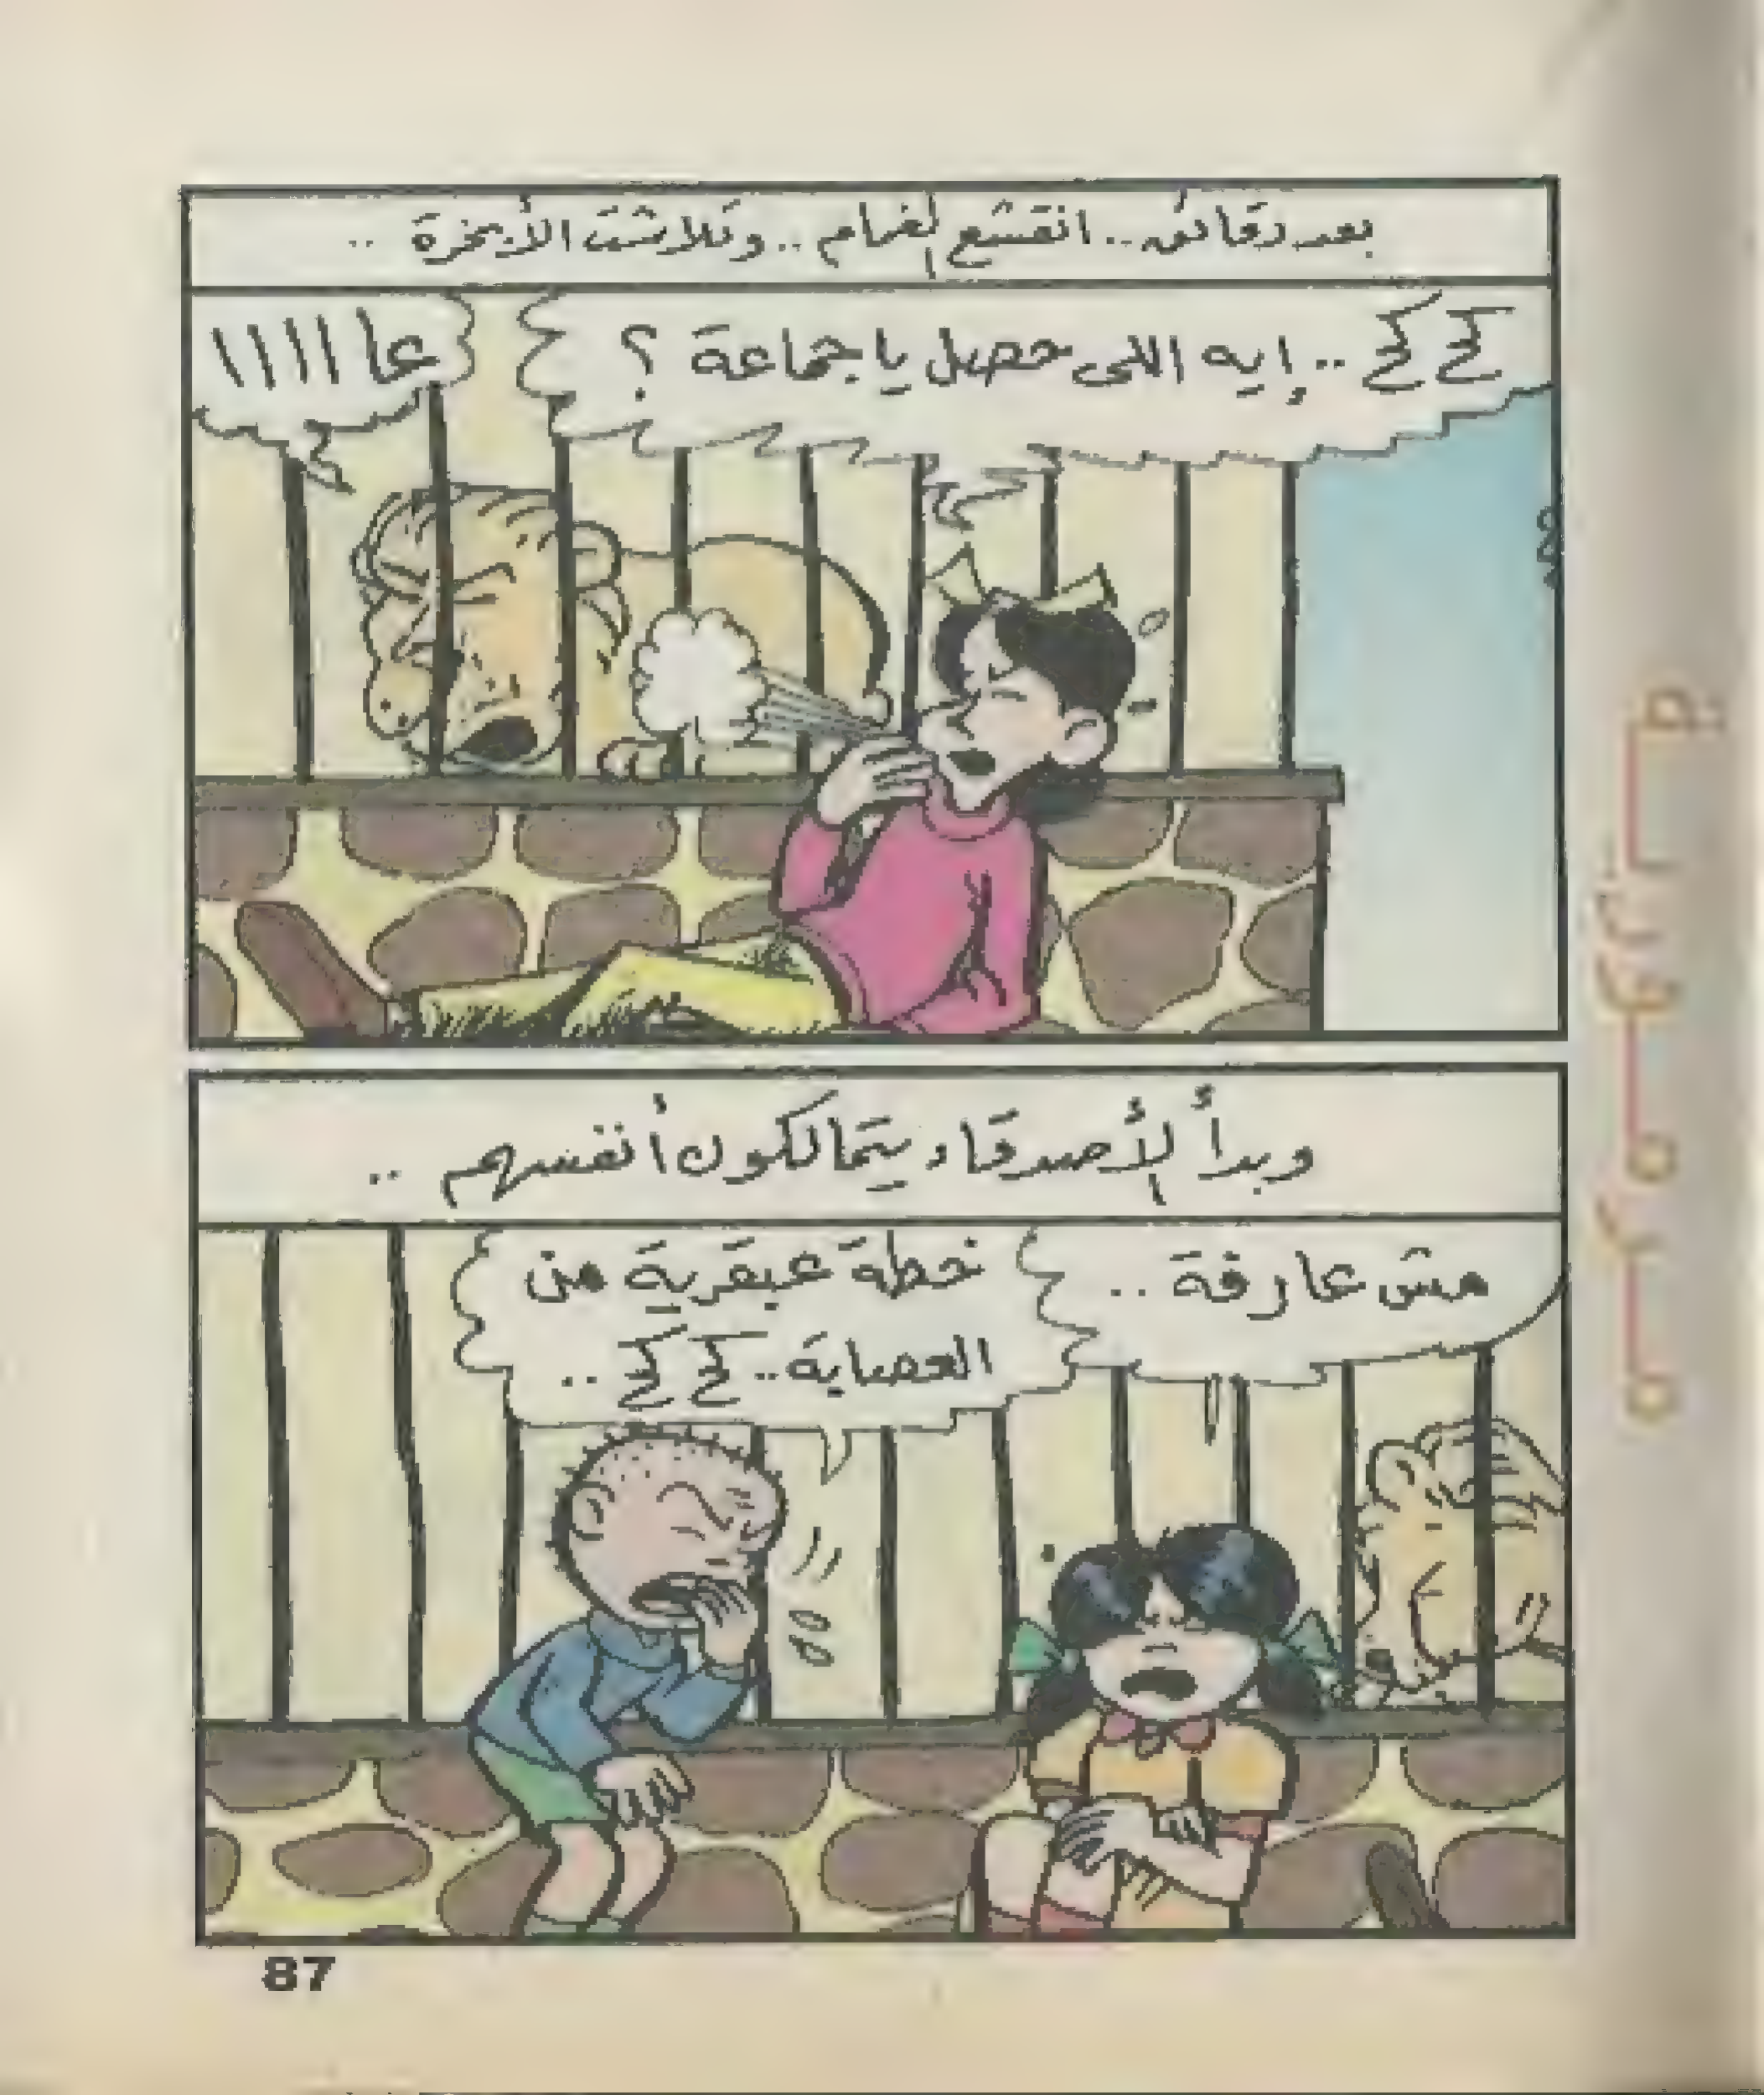 بعد دقائق .. انقشع الغمام .. وتلاشت الأبخرة ..
كح كح .. إيه اللى حصل يا جماعة ؟
عا ا ا ا ا
وبدأ الأصدقاء يتمالكون أنفسهم ..
مش عارفة ..
خطة عبقرية من
العصابة .. كح كح ..
87